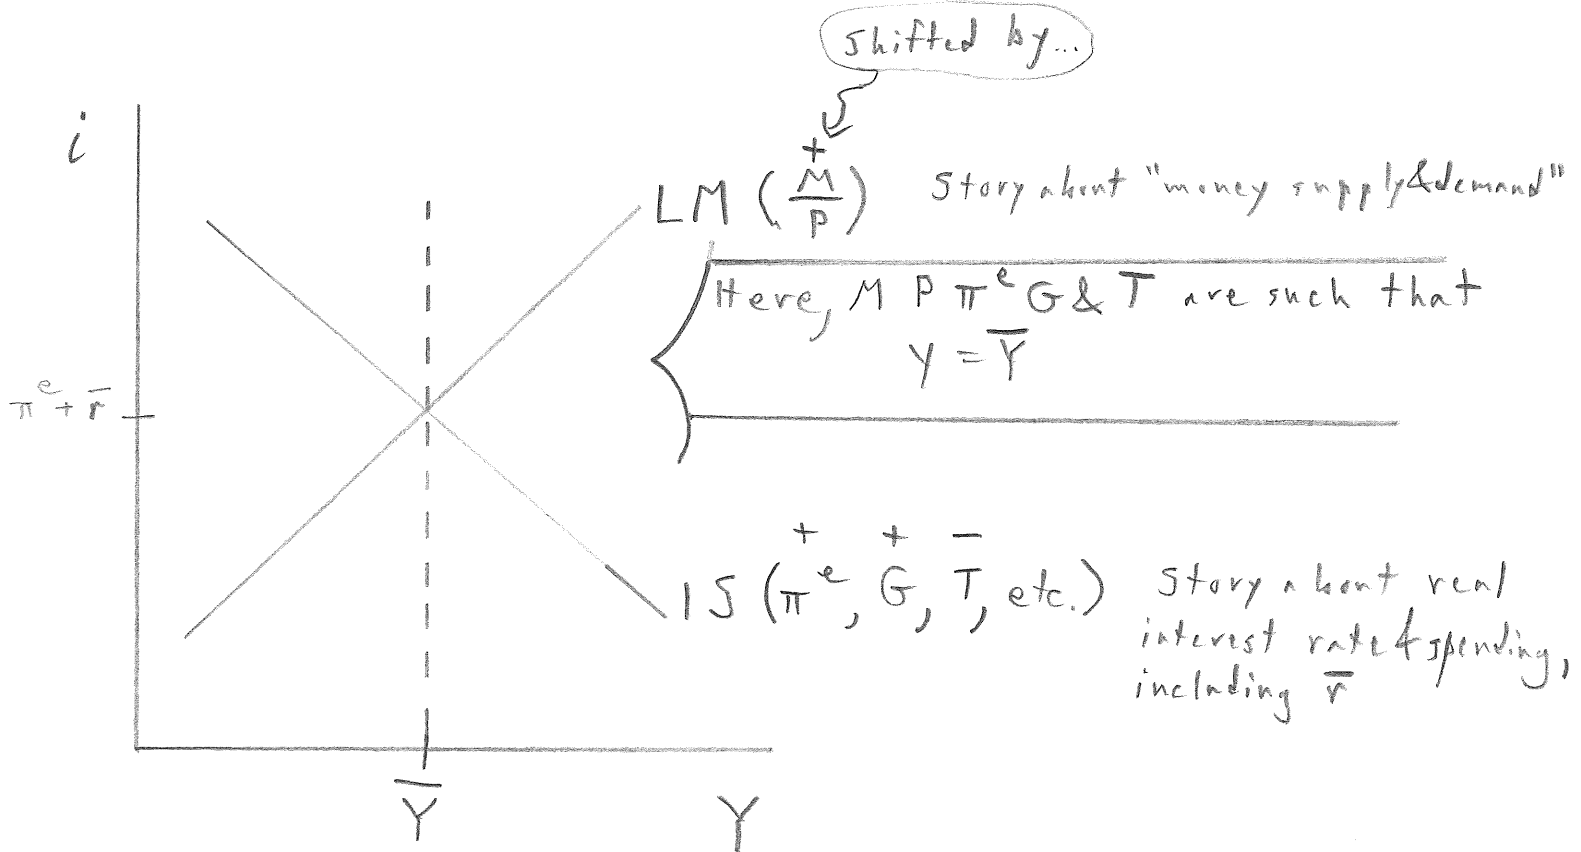 shifted by...
i
+
LM (M/P) Story about "money supply & demand"
Here, M P π^e G & T are such that
Y = Y̅
π^e + r̅
+ + −
IS (π^e, G, T, etc.) Story about real
interest rate & spending,
including r̅
Y̅ Y